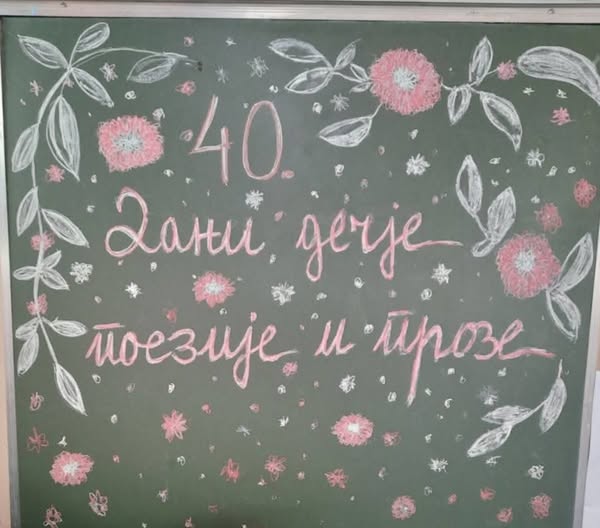 40.
Дани дечје
поезије и прозе